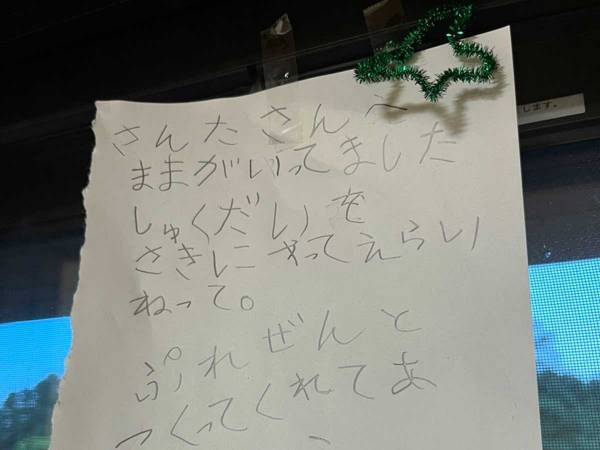 さんたさんへ
ままがいってました
しゅくだいを
さきにやってえらい
ねって。
ぷれぜんと
つくってくれてあ
します。